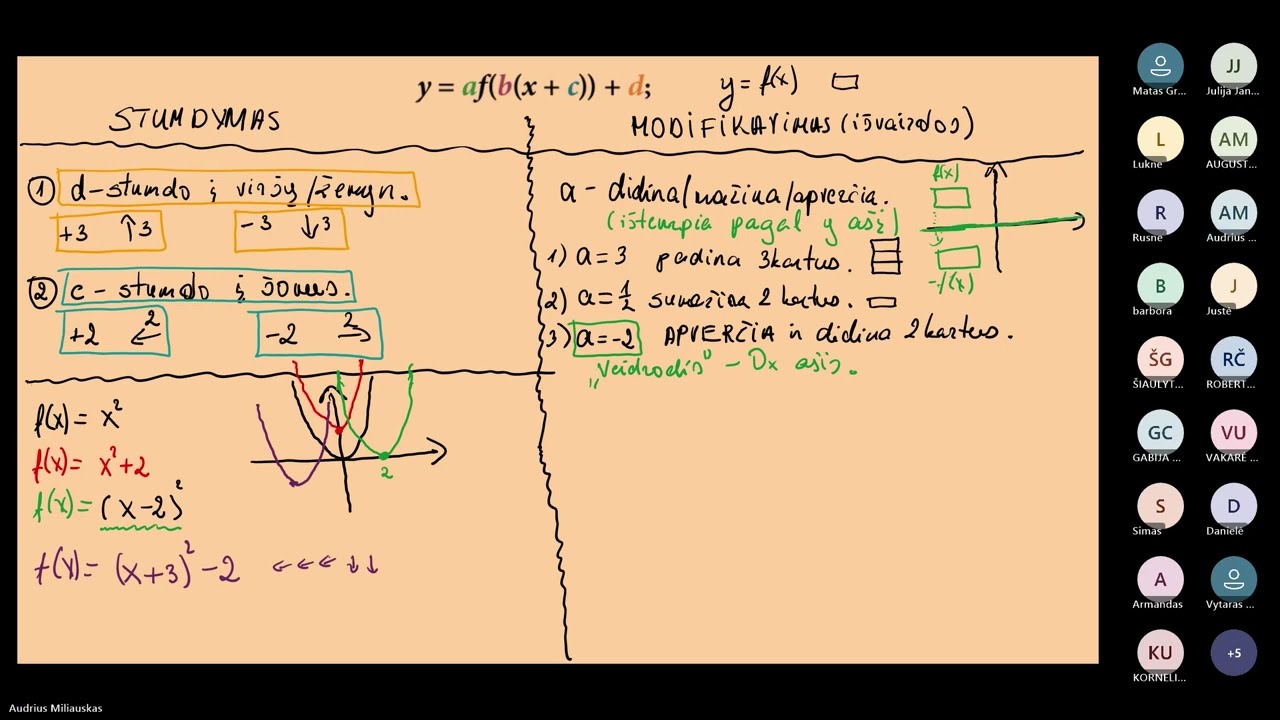 y = af(b(x + c)) + d;
y = f(x)
STUMDYMAS
MODIFIKAVIMAS (išvaizdos)
① d-stumdo į viršų/žemyn.
+3 ↑3
-3 ↓3
② c - stumdo į šonus.
+2 2←
-2 2→
f(x) = x²
f(x) = x²+2
f(x) = (x-2)²
f(x) = (x+3)² - 2 ←←←↓↓
2
a - didina/mažina/apverčia.
(ištempia pagal y ašį)
1) a = 3 padina 3 kartus.
2) a = 1/2 sumažina 2 kartus.
3) a = -2 APVERČIA ir didina 2 kartus.
„Veidrodis" - Ox ašis.
f(x)
-f(x)
Matas Gr...
Julija Jan...
L
Luknė
AM
AUGUST...
R
Rusnė
AM
Audrius ...
B
barbora
J
Justė
ŠG
ŠIAULYT...
RČ
ROBERT...
GC
GABIJA ...
VU
VAKARĖ ...
S
Simas
D
Danielė
A
Armandas
Vytaras ...
KU
KORNELI...
+5
JJ
Audrius Miliauskas